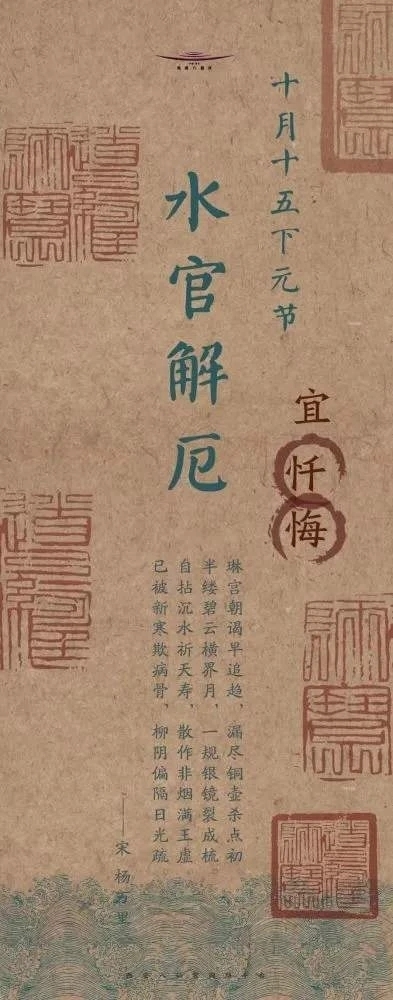 十月十五下元节
水官解厄
宜忏悔
琳宫朝谒早追趋，漏尽铜壶杀点初
半缕碧云横界月，一规银镜裂成梳
自拈沉水祈天寿，散作非烟满王虚
已被新寒欺病骨，柳阴偏隔日光疏
——宋 杨万里